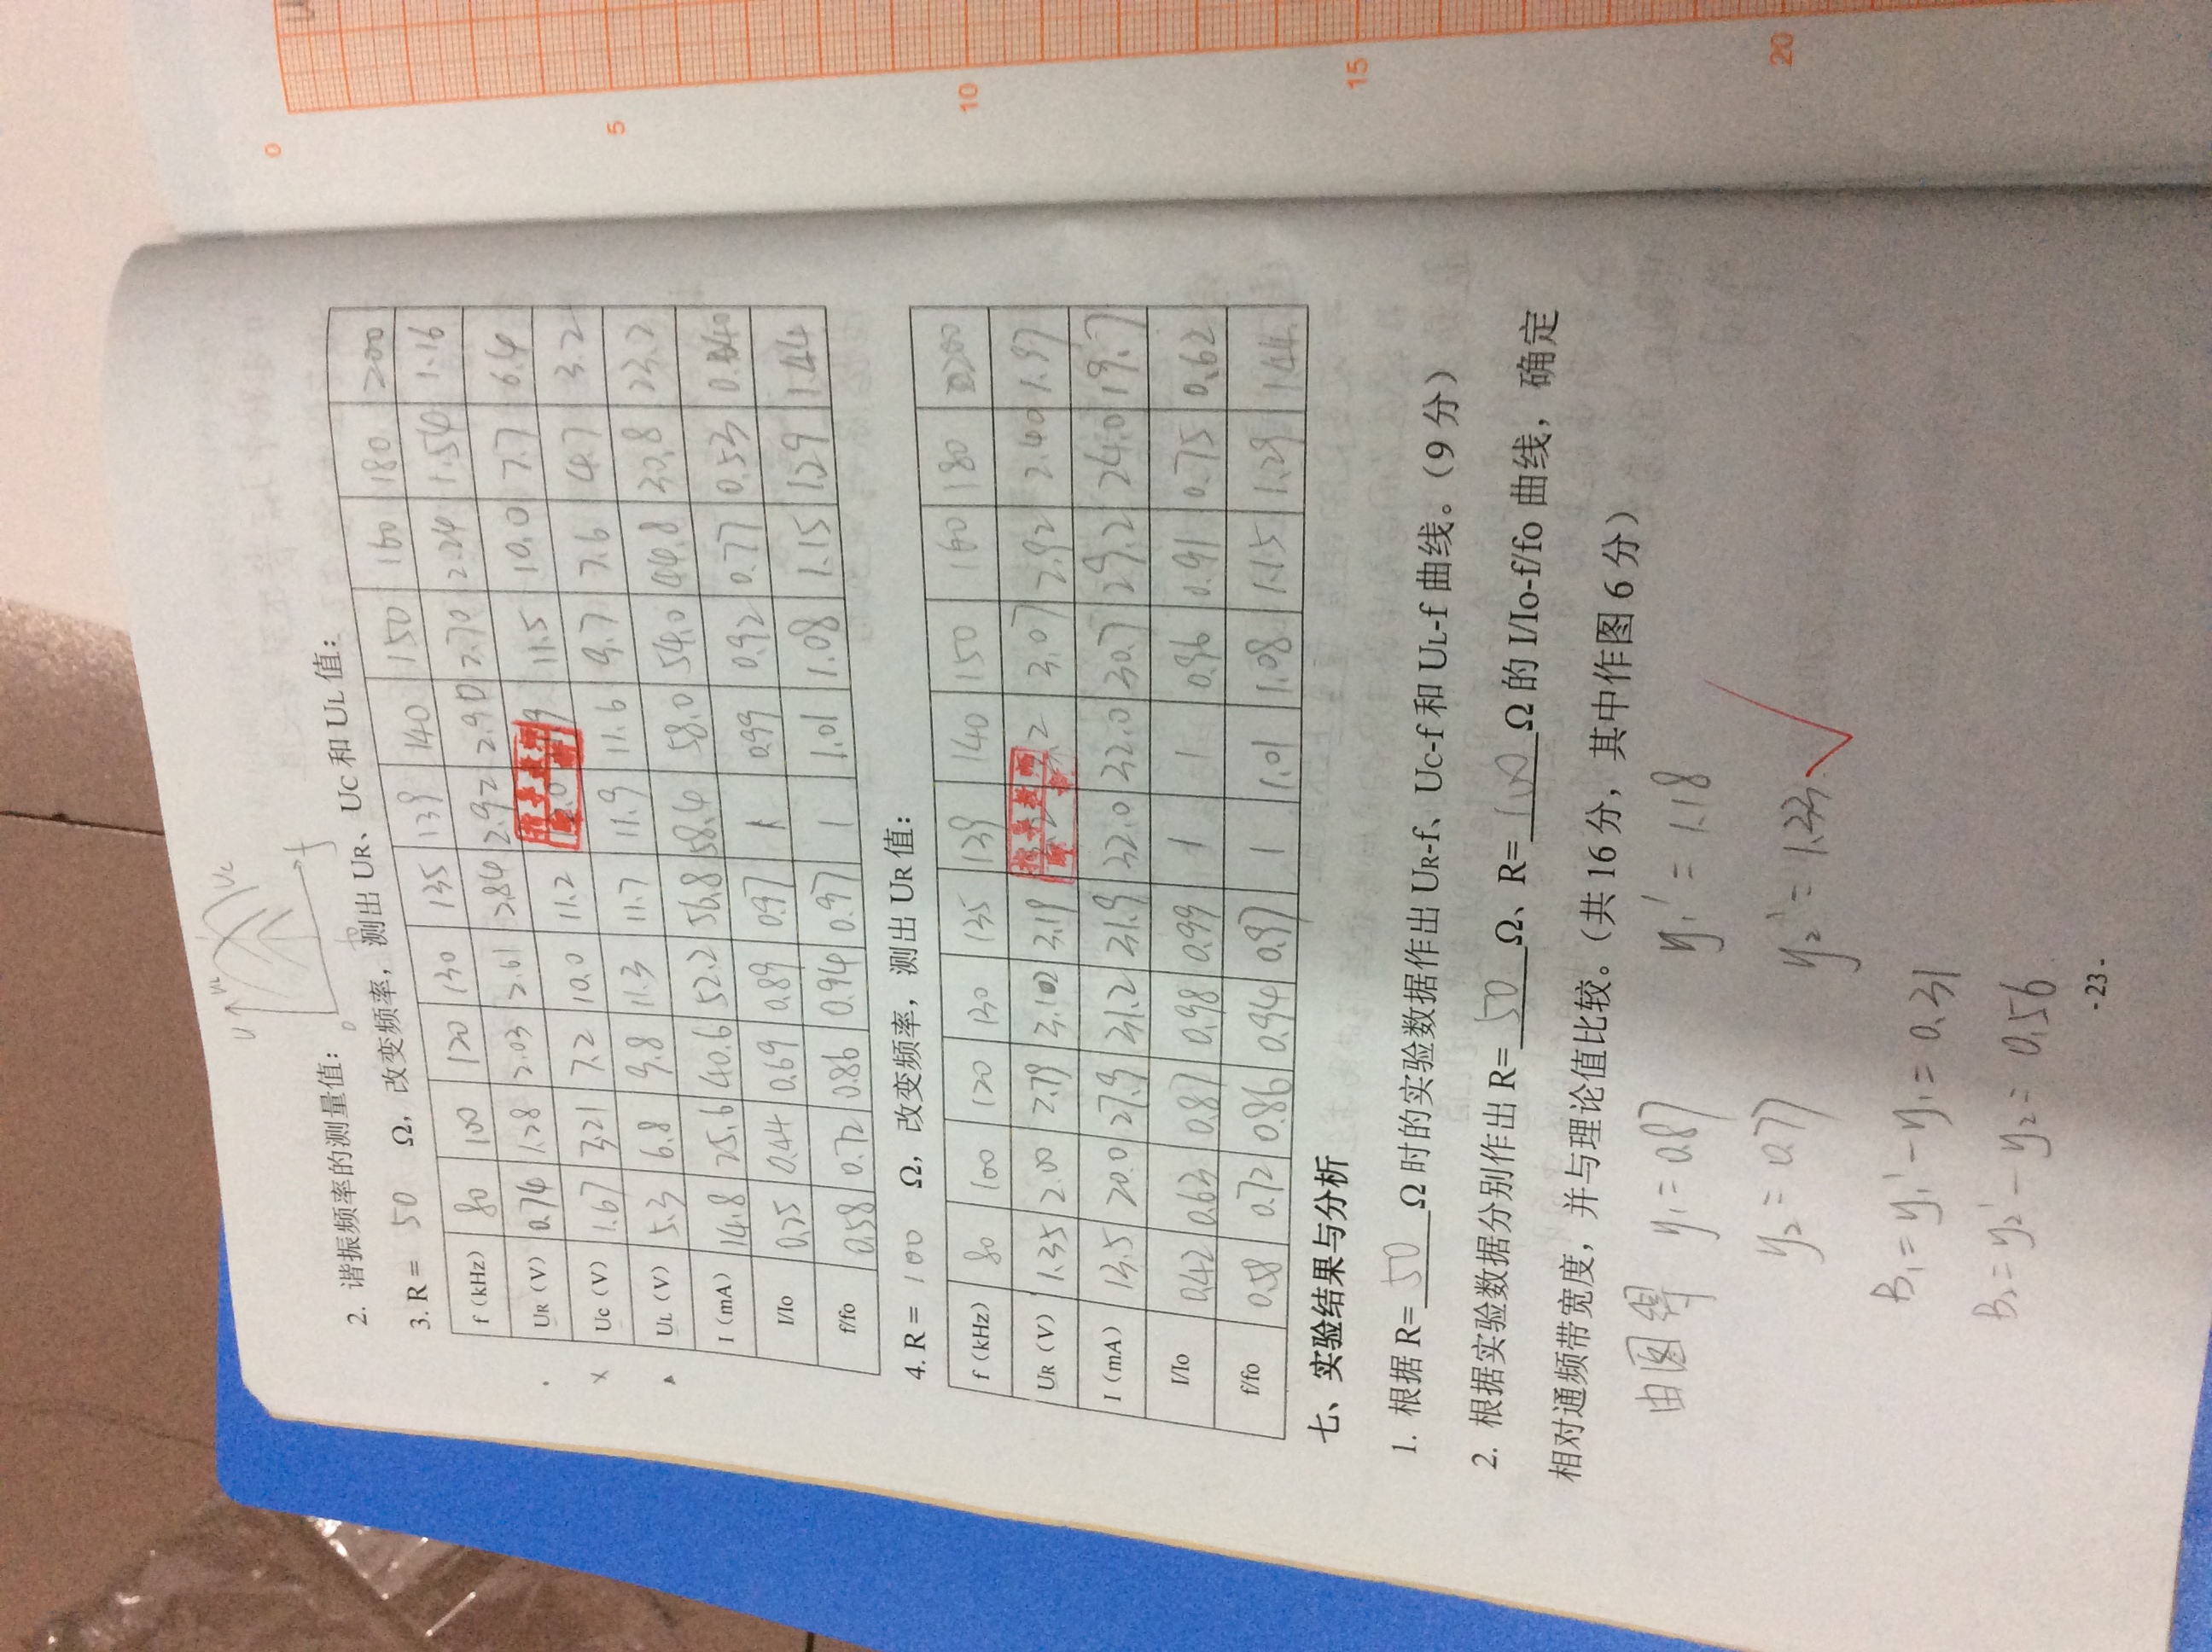 U UL UC
0 f
2. 谐振频率的测量值：
3. R = 50 Ω，改变频率，测出 UR、UC 和 UL 值：
f（kHz） 80 100 120 130 135 139 140 150 160 180 200
UR（V） 0.74 1.28 2.03 2.61 2.84 2.92 2.90 2.70 2.24 1.54 1.16
UC（V） 1.67 3.21 7.2 10.0 11.2 11.5 10.0 7.7 6.4
指导教师
UL（V） 5.3 6.8 9.8 11.3 11.7 11.9 11.6 9.7 7.6 4.7 3.2
I（mA） 14.8 25.6 40.6 52.2 56.8 58.4 58.0 54.0 44.8 30.8 23.2
I/Io 0.25 0.44 0.69 0.89 0.97 1 0.99 0.92 0.77 0.53 0.40
f/fo 0.58 0.72 0.86 0.94 0.97 1 1.01 1.08 1.15 1.29 1.44
4. R = 100 Ω，改变频率，测出 UR 值：
f（kHz） 80 100 120 130 135 139 140 150 160 180 200
UR（V） 1.35 2.00 2.79 3.12 3.19 3.2 3.2 3.07 2.92 2.40 1.97
指导教师
I（mA） 13.5 20.0 27.9 31.2 31.9 32.0 32.0 30.7 29.2 24.0 19.7
I/Io 0.42 0.63 0.87 0.98 0.99 1 1 0.96 0.91 0.75 0.62
f/fo 0.58 0.72 0.86 0.94 0.97 1 1.01 1.08 1.15 1.29 1.44
七、实验结果与分析
1. 根据 R=50Ω 时的实验数据作出 UR-f、UC-f 和 UL-f 曲线。（9 分）
2. 根据实验数据分别作出 R=50Ω、R=100Ω 的 I/Io-f/fo 曲线，确定
相对通频带宽度，并与理论值比较。（共 16 分，其中作图 6 分）
由图得 y₁=0.87 y₁'=1.18
y₂=0.77 y₂'=1.33
B₁=y₁'-y₁=0.31
B₂=y₂'-y₂=0.56
- 23 -
0
5
10
15
20